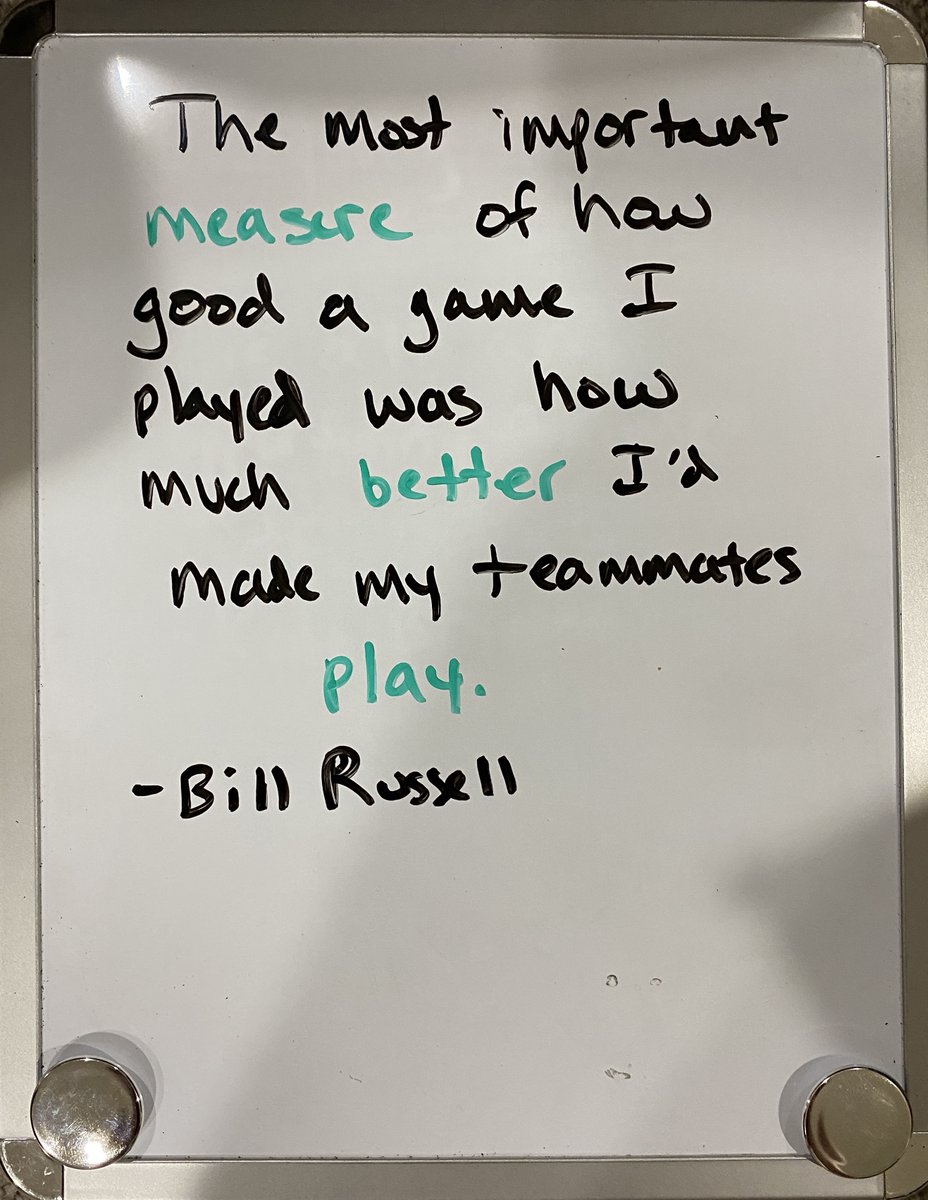 The most important
measure of how
good a game I
played was how
much better I'd
made my teammates
play.
-Bill Russell